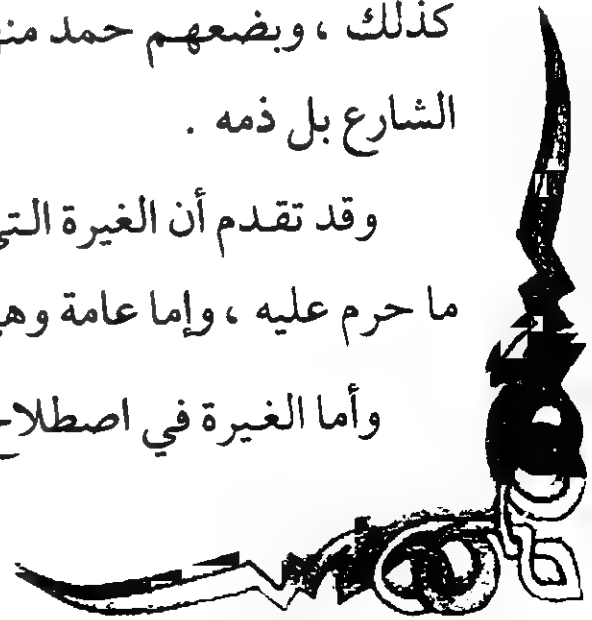 كذلك ، وبضعهم حمد منه
الشارع بل ذمه .
وقد تقدم أن الغيرة التي
ما حرم عليه ، وإما عامة وهي
وأما الغيرة في اصطلاح